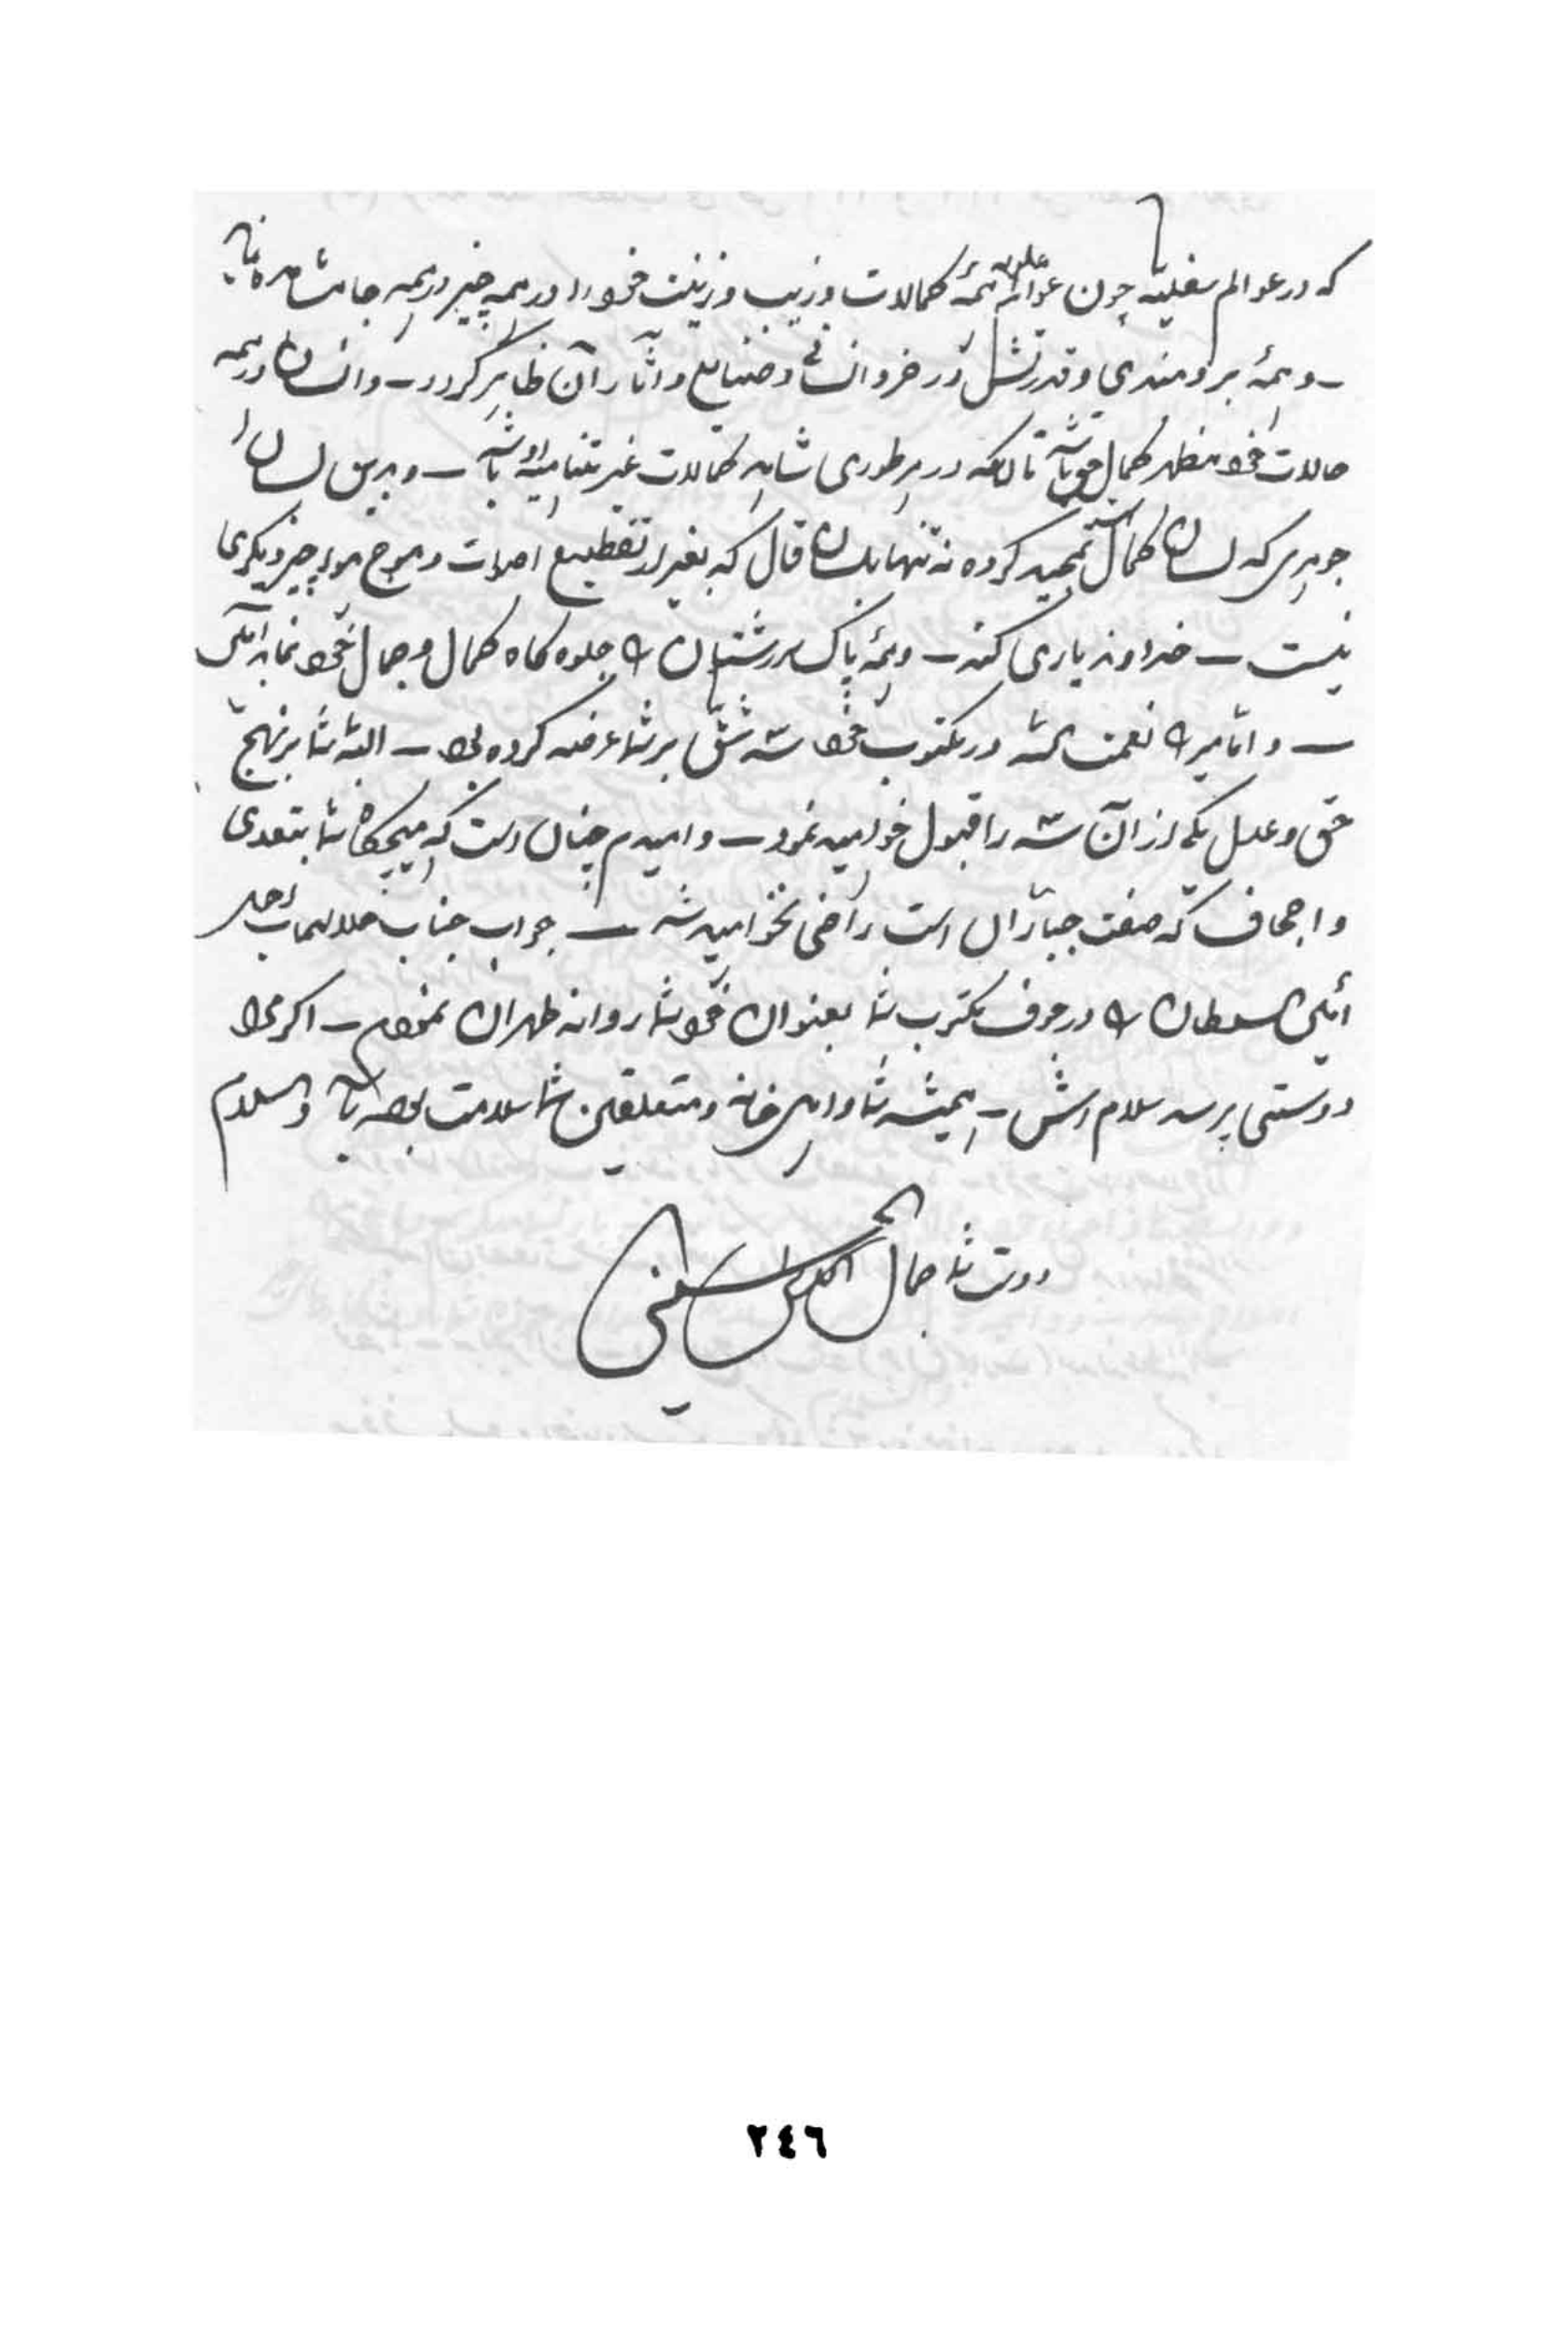 که در عوالم سفلیه چون عوالم علویه همهٔ کمالات و زیب و زینت خود را در همه چیز و در همه جا مشاهده نماید
– و همهٔ برومندی و قدرتش در خرد انسانی و صنایع و آثار آن ظاهر گردد – و انسان در همه
حالات خود مظهر کمال حق باشد تا آنکه در هر طوری شاهد کمالات غیر متناهیه او باشد – و بدین لسان
جوهری که لسان کمال است تمجید کرده نه تنها بلسان قال که بغیر از تقطیع اصوات و موج هوا چیز دیگری
نیست – خداوند یاری کند – و همهٔ پاک سرشتان را جلوه گاه کمال و جمال خود نماید آمین
– و اما میرزا نعمت الله در مکتوب خود سه شق بر شما عرضه کرده بود – البته شما بر نهج
حق و عدل یکی از آن سه را قبول خواهید نمود – و امیدم چنان است که هیچگاه شما بتعدی
و اجحاف که صفت جباران است راضی نخواهید شد – جواب جناب جلالتمآب اجل
امین السلطان را در جوف مکتوب شما بعنوان خود شما روانه طهران نمودم – اگر مرا
دوستی پرسد سلام رسانش – همیشه شما و اهل خانه و متعلقین شما سلامت بوده باشد والسلام
دوست شما جمال الدین الحسینی
٢٤٦